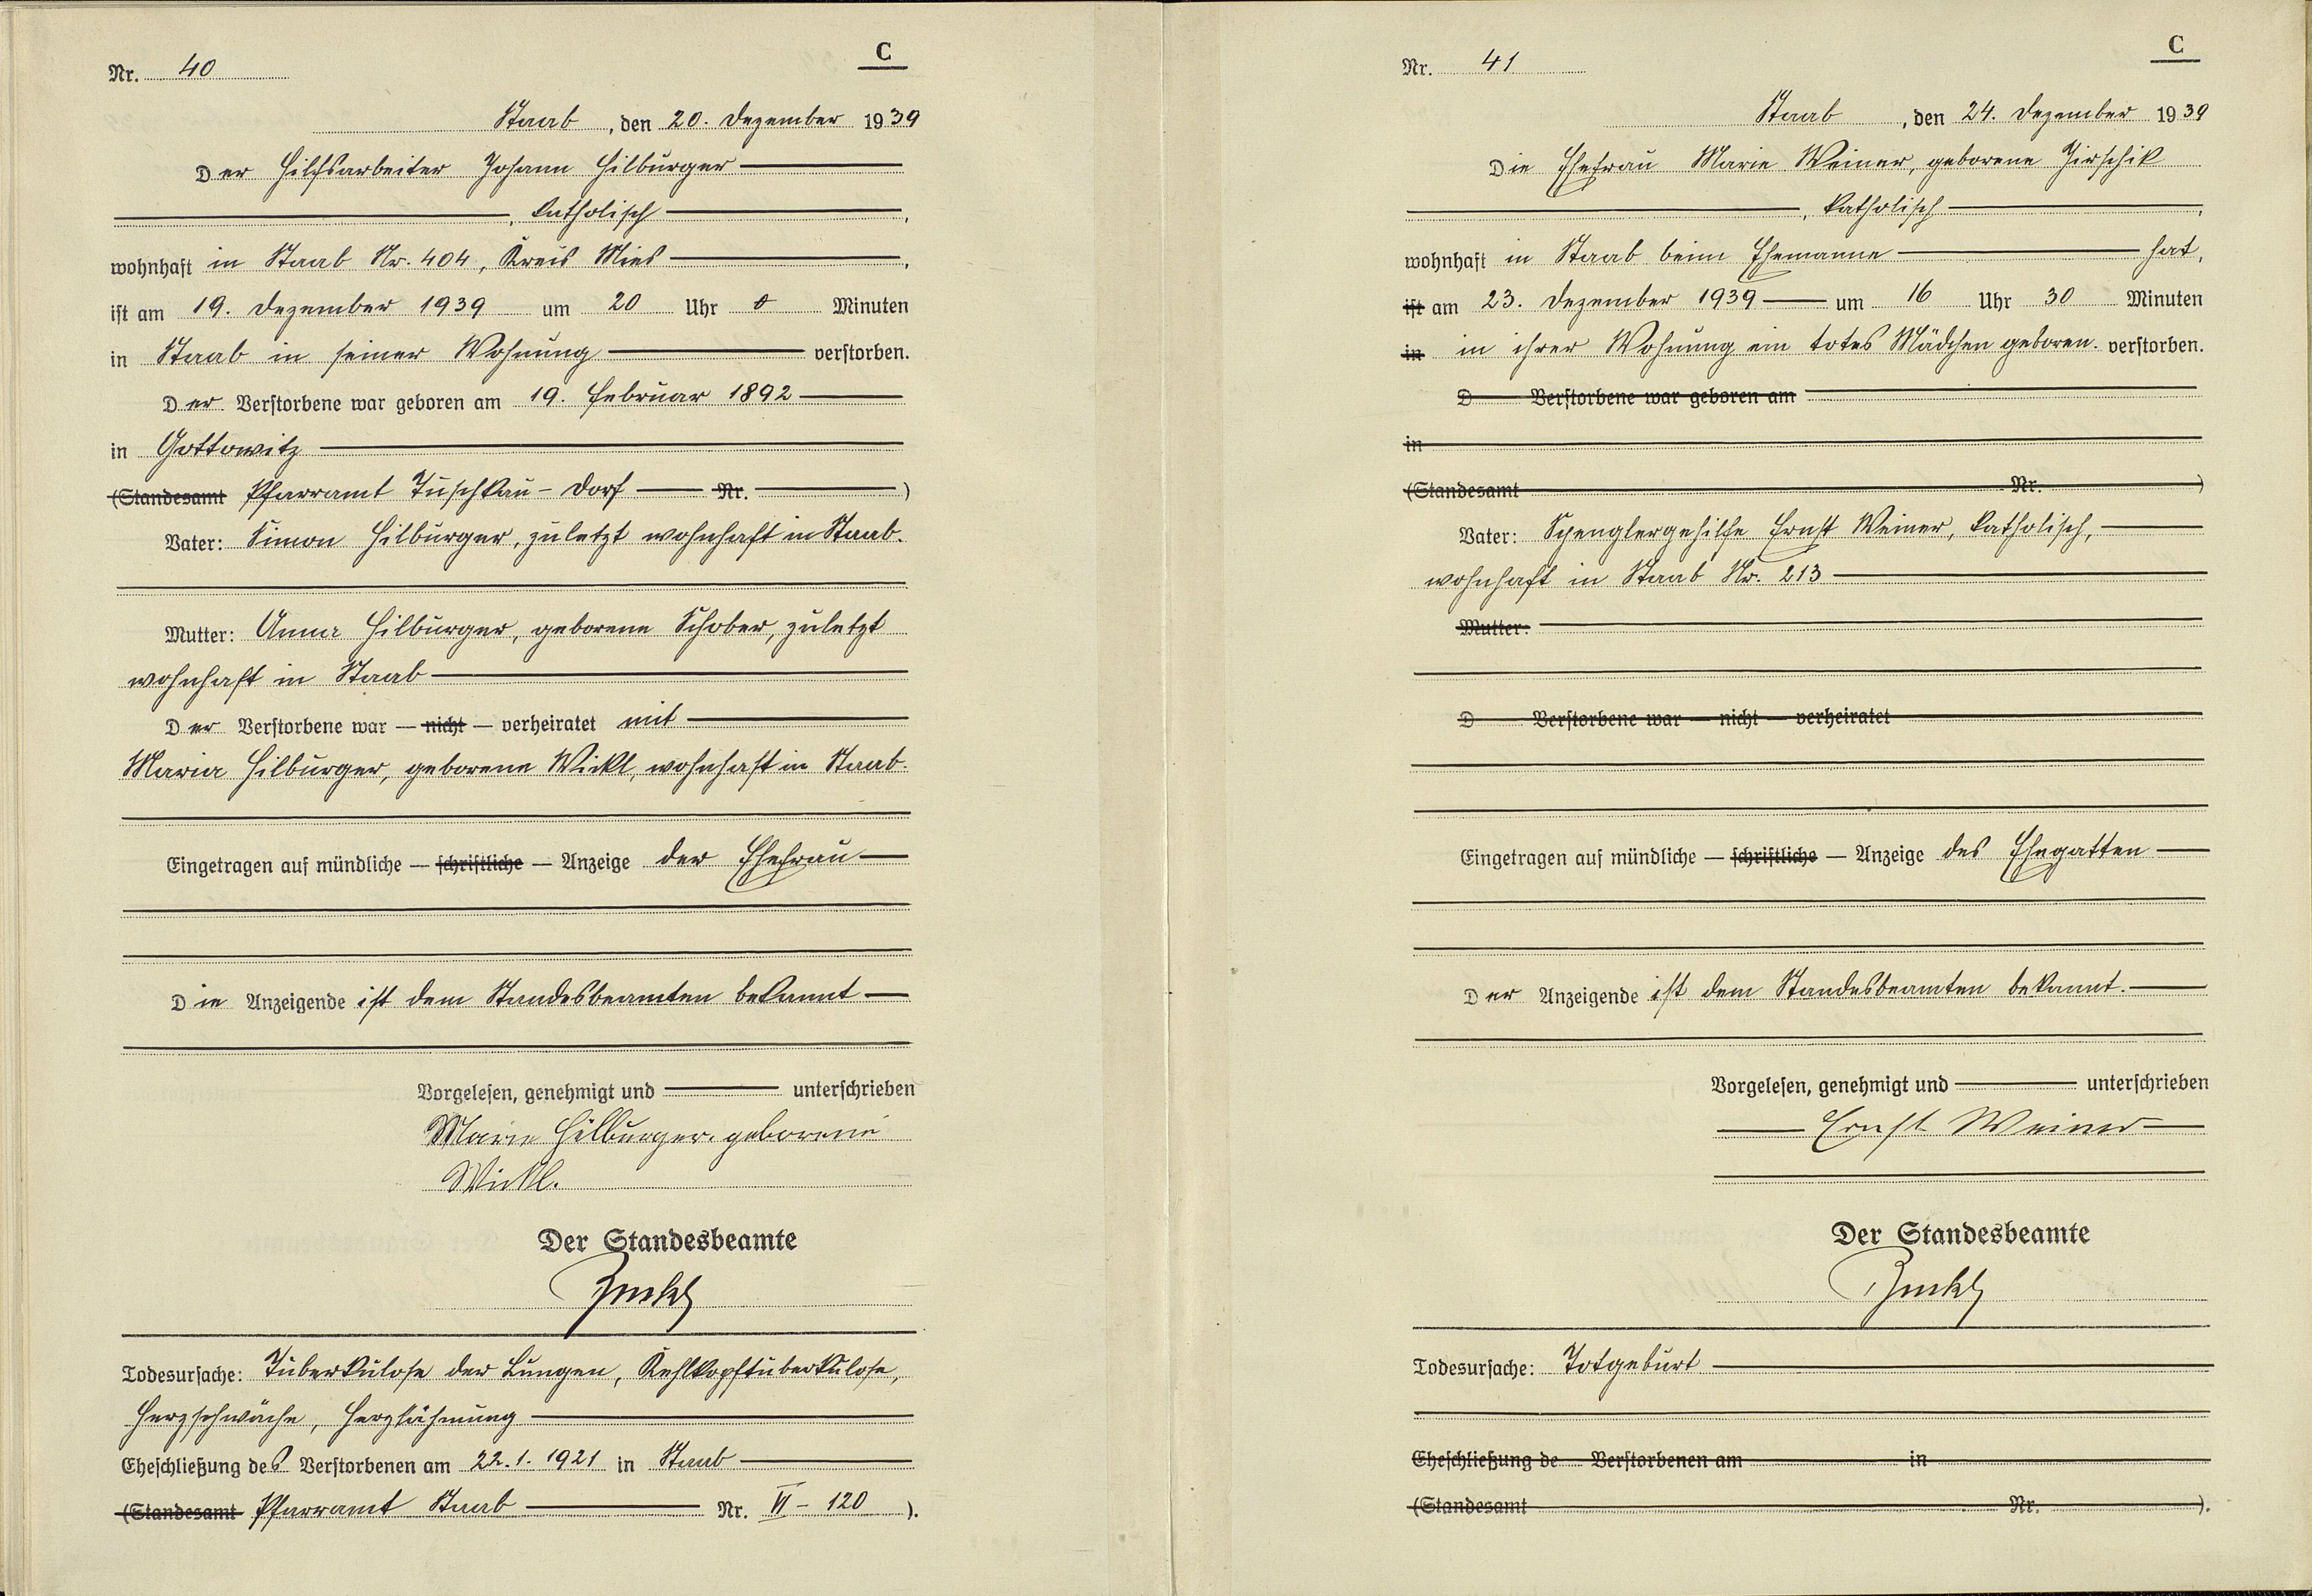 C
Nr. 40
Staab, den 20. Dezember 1939
Der Hilfsarbeiter Johann Hilburger
, katholisch,
wohnhaft in Staab Nr. 404, Kreis Mies,
ist am 19. Dezember 1939 um 20 Uhr 0 Minuten
in Staab in seiner Wohnung verstorben.
Der Verstorbene war geboren am 19. Februar 1892
in Gottowitz
(Standesamt Pfarramt Tuschkau-Dorf Nr. )
Vater: Simon Hilburger, zuletzt wohnhaft in Staab.
Mutter: Anna Hilburger, geborene Schober, zuletzt
wohnhaft in Staab
Der Verstorbene war — nicht — verheiratet mit
Maria Hilburger, geborene Wickl, wohnhaft in Staab.
Eingetragen auf mündliche — schriftliche — Anzeige der Ehefrau
Die Anzeigende ist dem Standesbeamten bekannt
Vorgelesen, genehmigt und unterschrieben
Marie Hilburger. geborene
Wickl.
Der Standesbeamte
Todesursache: Tuberkulose der Lungen, Kehlkopftuberkulose,
Herzschwäche, Herzlähmung
Eheschließung des Verstorbenen am 22.1.1921 in Staab
(Standesamt Pfarramt Staab Nr. VI - 120 ).
C
Nr. 41
Staab, den 24. Dezember 1939
Die Ehefrau Marie Weiner, geborene Jirschik
, katholisch,
wohnhaft in Staab beim Ehemanne hat,
ist am 23. Dezember 1939 um 16 Uhr 30 Minuten
in in ihrer Wohnung ein totes Mädchen geboren. verstorben.
D Verstorbene war geboren am
in
(Standesamt Nr. )
Vater: Spenglergehilfe Ernst Weiner, katholisch,
wohnhaft in Staab Nr. 213
Mutter:
D Verstorbene war — nicht — verheiratet
Eingetragen auf mündliche — schriftliche — Anzeige des Ehegatten
Der Anzeigende ist dem Standesbeamten bekannt.
Vorgelesen, genehmigt und unterschrieben
Ernst Weiner
Der Standesbeamte
Todesursache: Totgeburt
Eheschließung de Verstorbenen am in
(Standesamt Nr. ).